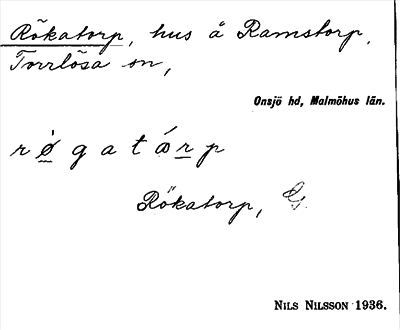 Rökatorp, hus å Ramstorp,
Torrlösa sn,
Onsjö hd, Malmöhus län.
r ø̀ g a t ó r p
Rökatorp, G.
NILS NILSSON 1936.